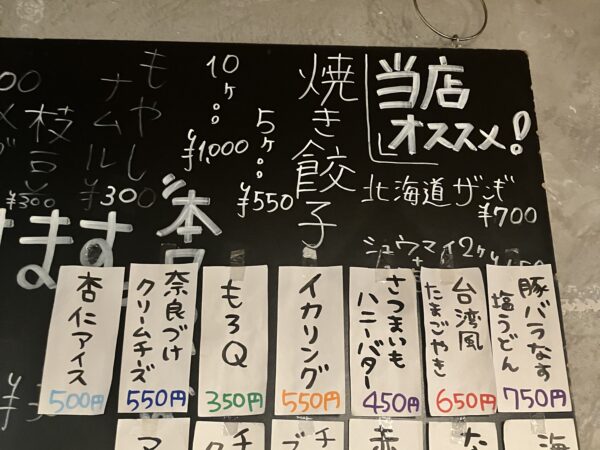 当店
オススメ!
北海道ザンギ
¥700
シュウマイ2ヶ
焼き餃子
5ヶ
¥550
10ヶ
¥1,000
もやし
ナムル
¥300
枝豆
¥300
ます
本日
豚バラなす
塩うどん
750円
台湾風
たまごやき
650円
さつまいも
ハニーバター
450円
イカリング
550円
もろQ
350円
奈良づけ
クリームチーズ
550円
杏仁アイス
500円